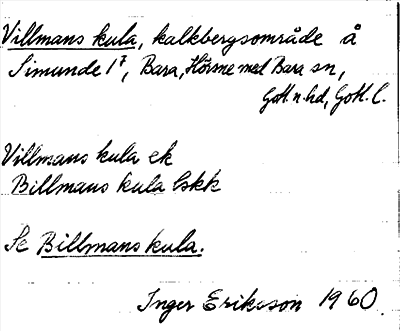 Villmans kula, kalkbergsområde å
Simunde 1⁷, Bara, Hörsne med Bara sn,
Gotl. n. hd, Gotl. l.
Villmans kula ek
Billmans kula lskk
Se Billmans kula.
Inger Erikson 1960.